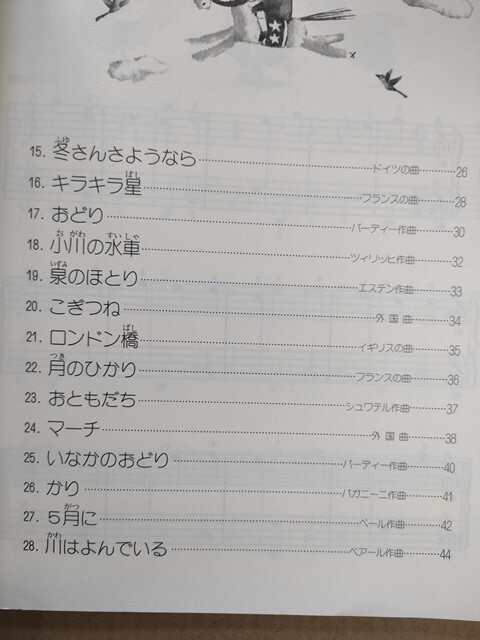 15. 冬さんさようなら……ドイツの曲……26
16. キラキラ星……フランスの曲……28
17. おどり……バーディー作曲……30
18. 小川の水車……ツィリッヒ作曲……32
19. 泉のほとり……エステン作曲……33
20. こぎつね……外国曲……34
21. ロンドン橋……イギリスの曲……35
22. 月のひかり……フランスの曲……36
23. おともだち……シュワテル作曲……37
24. マーチ……外国曲……38
25. いなかのおどり……バーディー作曲……40
26. かり……パガニーニ作曲……41
27. 5月に……ベール作曲……42
28. 川はよんでいる……ベアール作曲……44